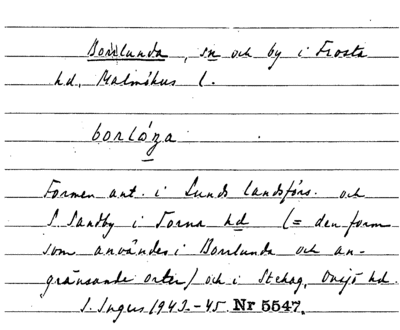 Borrlunda, sn och by i Frosta
hd, Malmöhus l.
borlóza
Formen ant. i Lunds landsförs. och
S Sandby i Torna hd (= den form
som användes i Borrlunda och an-
gränsande orter) och i Stehag, Onsjö hd.
S. Ingers 1943–45. Nr 5547.